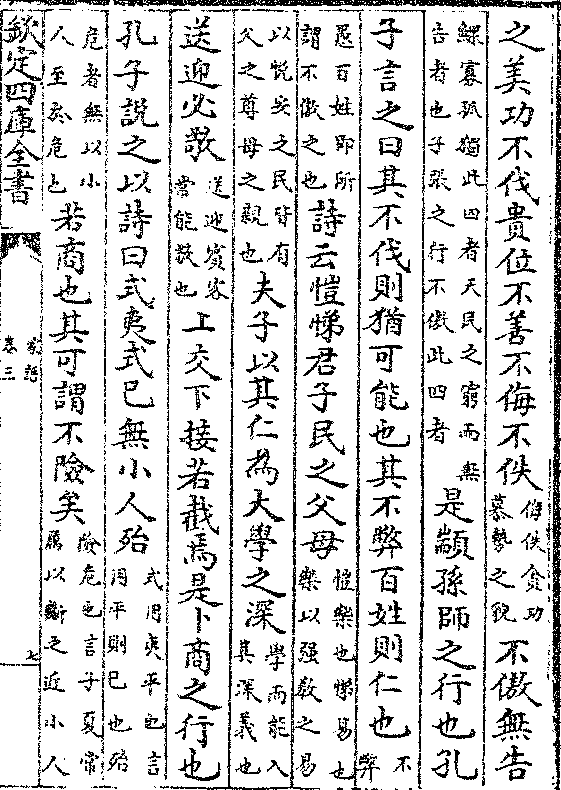 之美功不伐貴位不善不侮不佚侮佚貪功慕勢之貌不傲無告
鰥寡孤獨此四者天民之窮而無告者也子張之行不傲此四者是顓孫師之行也孔
子言之曰其不伐則猶可能也其不弊百姓則仁也不弊
愚百姓即所謂不傲之也詩云愷悌君子民之父母愷樂也悌易也樂以强教之易
以悅安之民皆有父之尊母之親也夫子以其仁為大學之深學而能入其深義也
送迎必敬送迎賓客常能敬也上交下接若截焉是卜商之行也
孔子說之以詩曰式夷式已無小人殆式用夷平也言用平則已也殆
危者無以小人至於危也若商也其可謂不險矣險危也言子夏常厲以斷之近小人
欽定四庫全書
家語
卷三
七